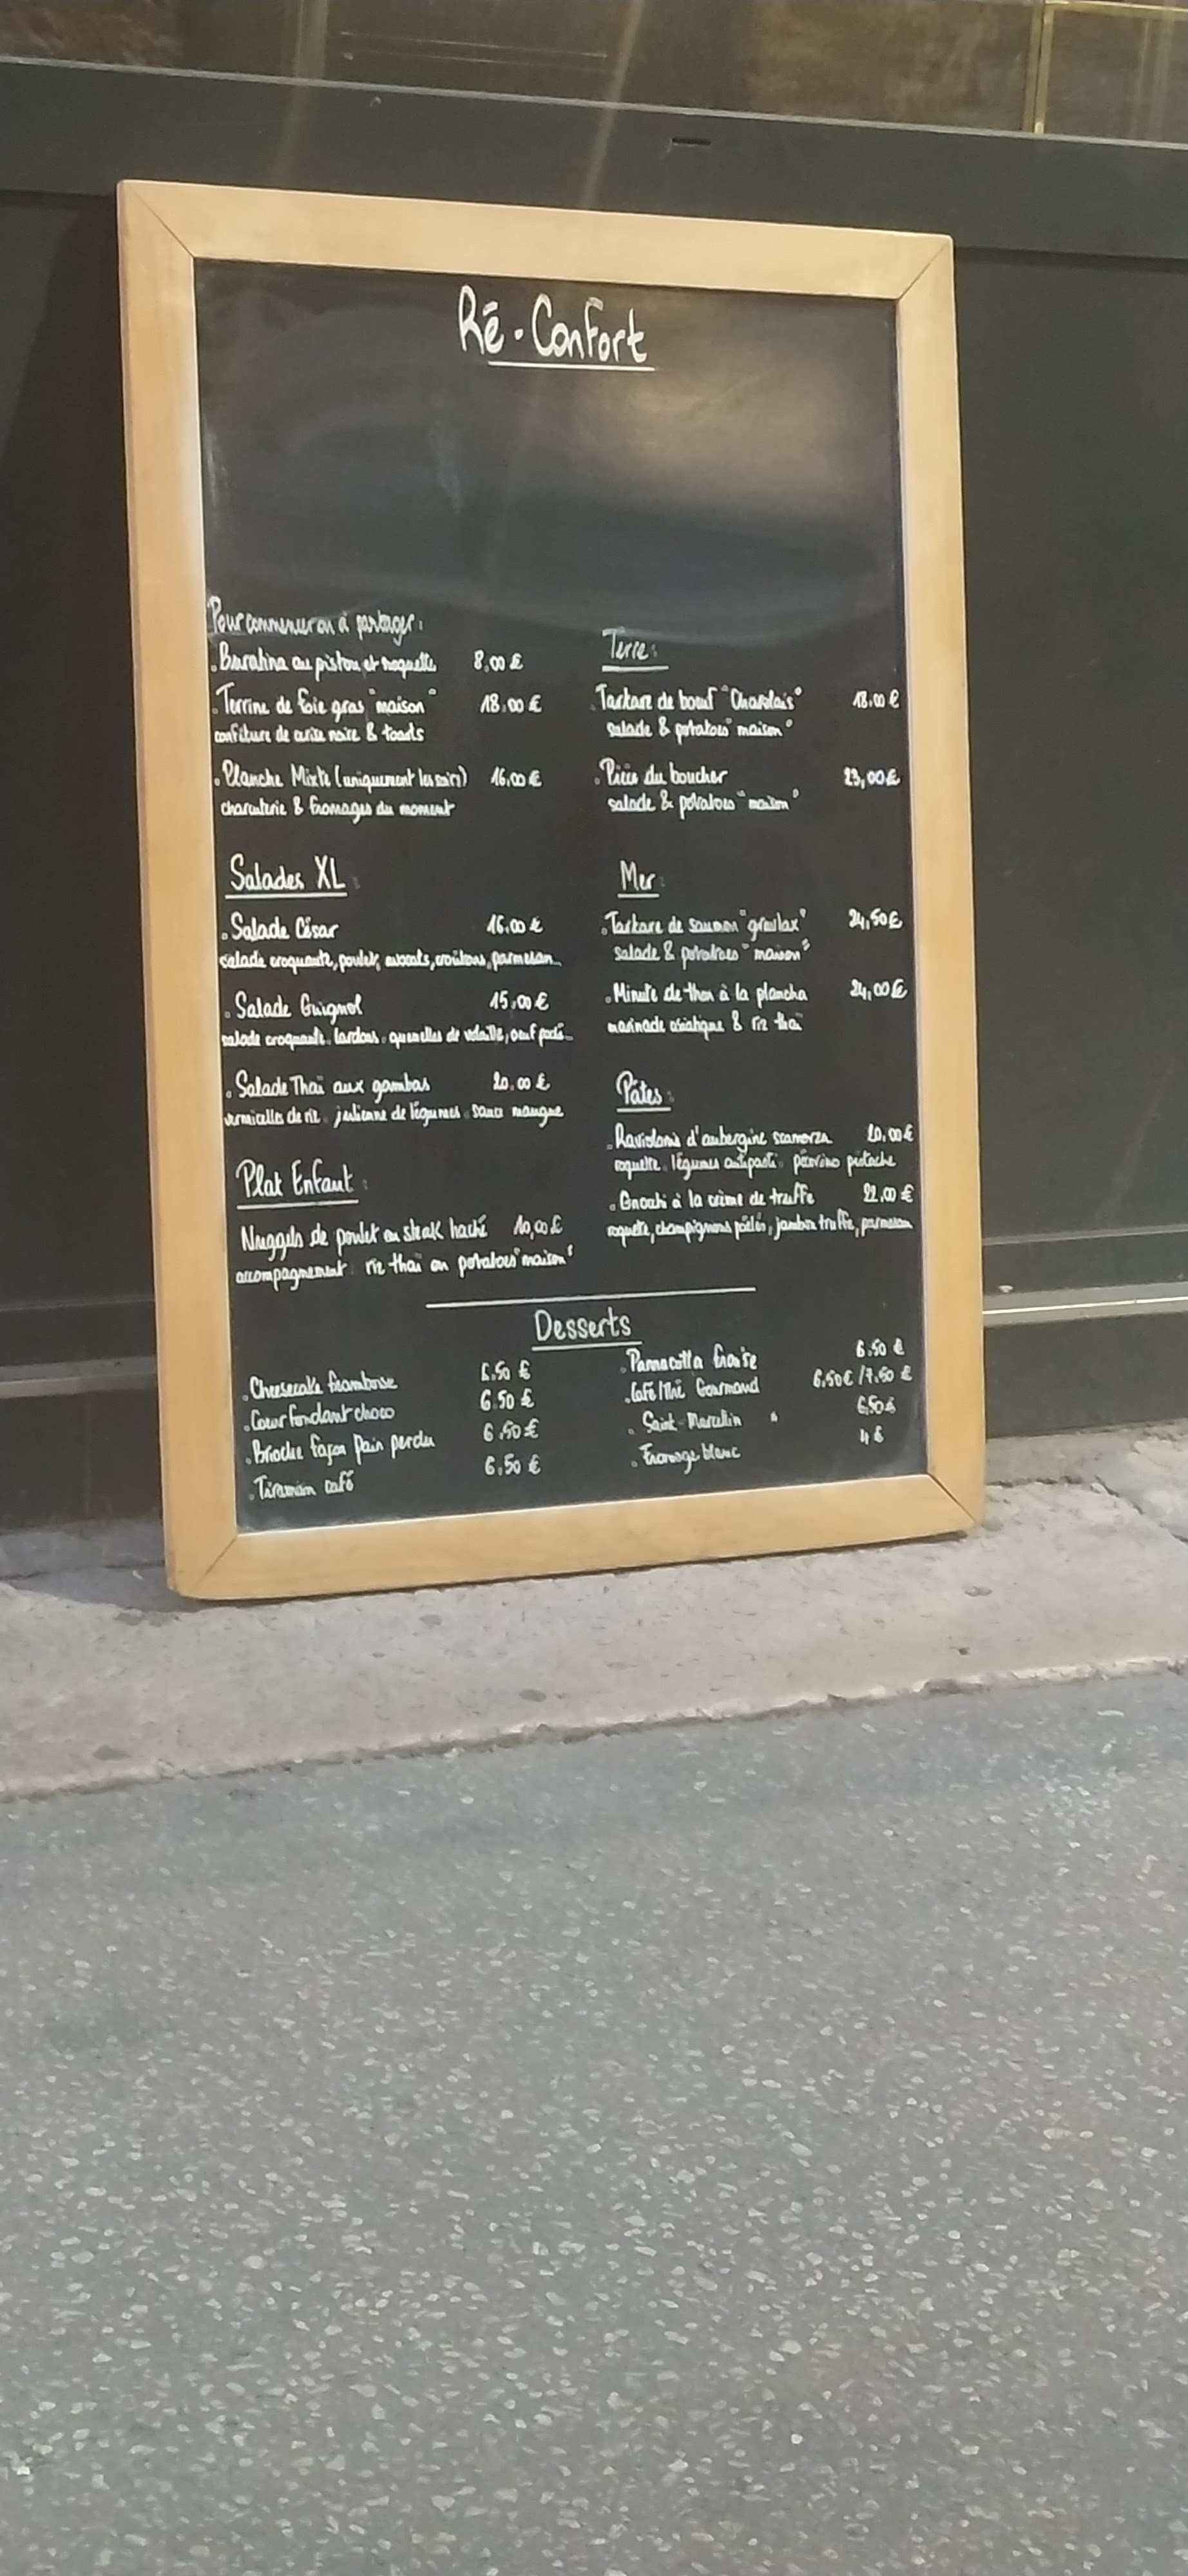 Ré-Confort
Pour commencer ou à partager :
. Burratina au pistou et roquette 8,00 €
. Terrine de foie gras "maison" 18,00 €
confiture de cerise noire & toasts
. Planche Mixte (uniquement les soirs) 16,00 €
charcuterie & fromages du moment
Salades XL :
. Salade César 16,00 €
salade croquante, poulet, avocats, croûtons, parmesan
. Salade Guignol 15,00 €
salade croquante, lardons, quenelles de volaille, oeuf poché
. Salade Thaï aux gambas 20,00 €
vermicelles de riz, julienne de légumes, sauce mangue
Plat Enfant :
Nuggets de poulet ou steak haché 10,00 €
accompagnement : riz thaï ou potatoes "maison"
Terre :
. Tartare de boeuf "Charolais" 18,00 €
salade & potatoes "maison"
. Pièce du boucher 23,00 €
salade & potatoes "maison"
Mer :
. Tartare de saumon "gravlax" 24,50 €
salade & potatoes "maison"
. Minute de thon à la plancha 24,00 €
marinade asiatique & riz thaï
Pâtes :
. Raviolonis d'aubergine scamorza 20,00 €
roquette, légumes antipasti, pecorino pistache
. Gnocchi à la crème de truffe 22,00 €
roquette, champignons poêlés, jambon truffe, parmesan
Desserts
. Cheesecake framboise 6,50 €
. Coeur fondant choco 6,50 €
. Brioche façon Pain perdu 6,50 €
. Tiramisu café 6,50 €
. Pannacotta fraise 6,50 €
. Café/Thé Gourmand 6,50 € / 7,50 €
. Saint-Marcelin 6,50 €
. Fromage blanc 4 €